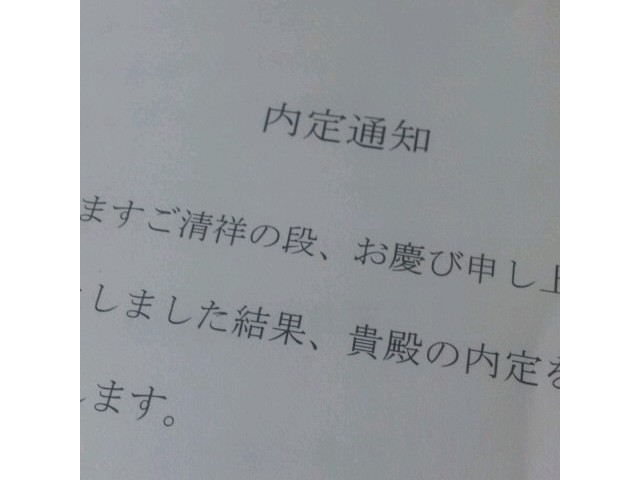 内定通知
ますご清祥の段、お慶び申し上
しました結果、貴殿の内定を
します。